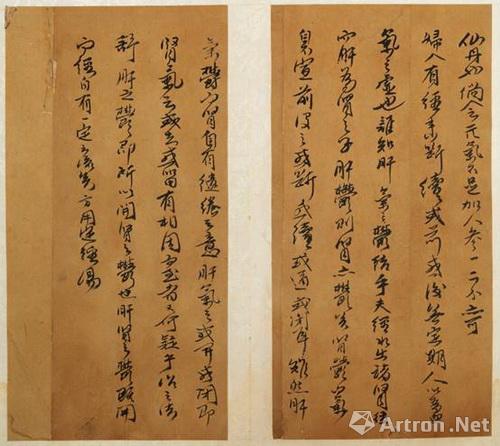 仙丹也倘元氣不足加人參一二可
婦人有經來斷續或前或後無定期人以為
氣之虛也誰知肝氣之鬱結乎夫經水出諸腎
而肝為腎之子肝鬱則腎亦鬱矣腎鬱氣
宣前後之或斷或續或通或閉耳雖然肝
氣鬱而腎自有繾綣之意肝氣之或開或閉即
腎氣之或去或留有相因而至者又何疑乎治之法
舒肝之鬱即所以開腎之鬱也肝腎之鬱既開
而經自有一定之矣方用定經湯
Artron.Net